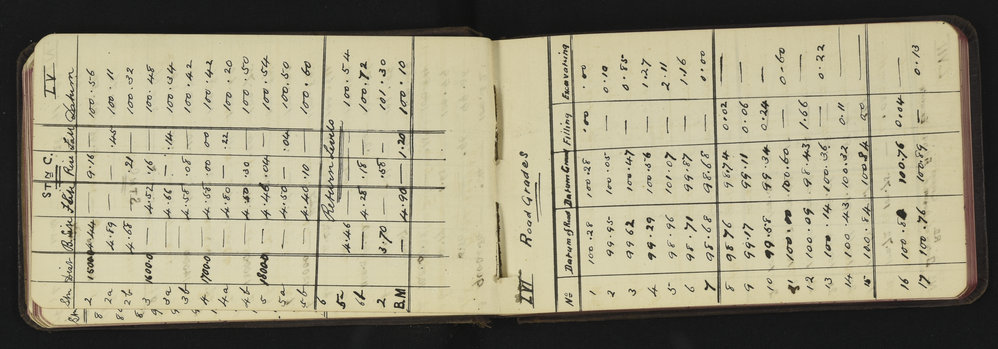 LV
ST to C.
Stn Dist Rise Fall Datum
2 15000 .44 — 9.16 — 100.56
2a 4.89 — — .45 100.11
2b 4.68 — .21 — 100.32
3 16000 4.52 .16 — 100.48
3a 4.66 — .14 100.34
3b 4.58 .08 — 100.42
4 17000 4.58 .00 .00 100.42
4a 4.80 — .22 100.20
4b 4.50 .30 — 100.50
5 18000 4.46 .04 — 100.54
5a 4.50 — .04 100.50
5b 4.40 .10 — 100.60
6 Return Levels
5a 4.46 — — — 100.54
4.28 .18 — 100.72
2 3.70 — .58 — 101.30
BM — 4.90 — 1.20 100.10
LVI Road Grades
No Datum of Road Datum Ground Filling Excavating
1 100.28 100.28 .00 .00
2 99.95 100.05 — 0.10
3 99.62 100.47 — 0.85
4 99.29 100.56 — 1.27
5 98.96 101.07 — 2.11
6 98.71 99.87 — 1.16
7 98.68 98.68 — 0.00
8 98.76 98.74 0.02 —
9 99.17 99.11 0.06 —
10 99.58 99.34 0.24 —
11 100.00 100.60 — 0.60
12 100.09 98.43 1.66 —
13 100.14 100.36 — 0.22
14 100.43 100.32 0.11 —
15 100.84 100.84 00 —
16 100.80 100.76 0.04 —
17 100.76 100.89 — 0.13